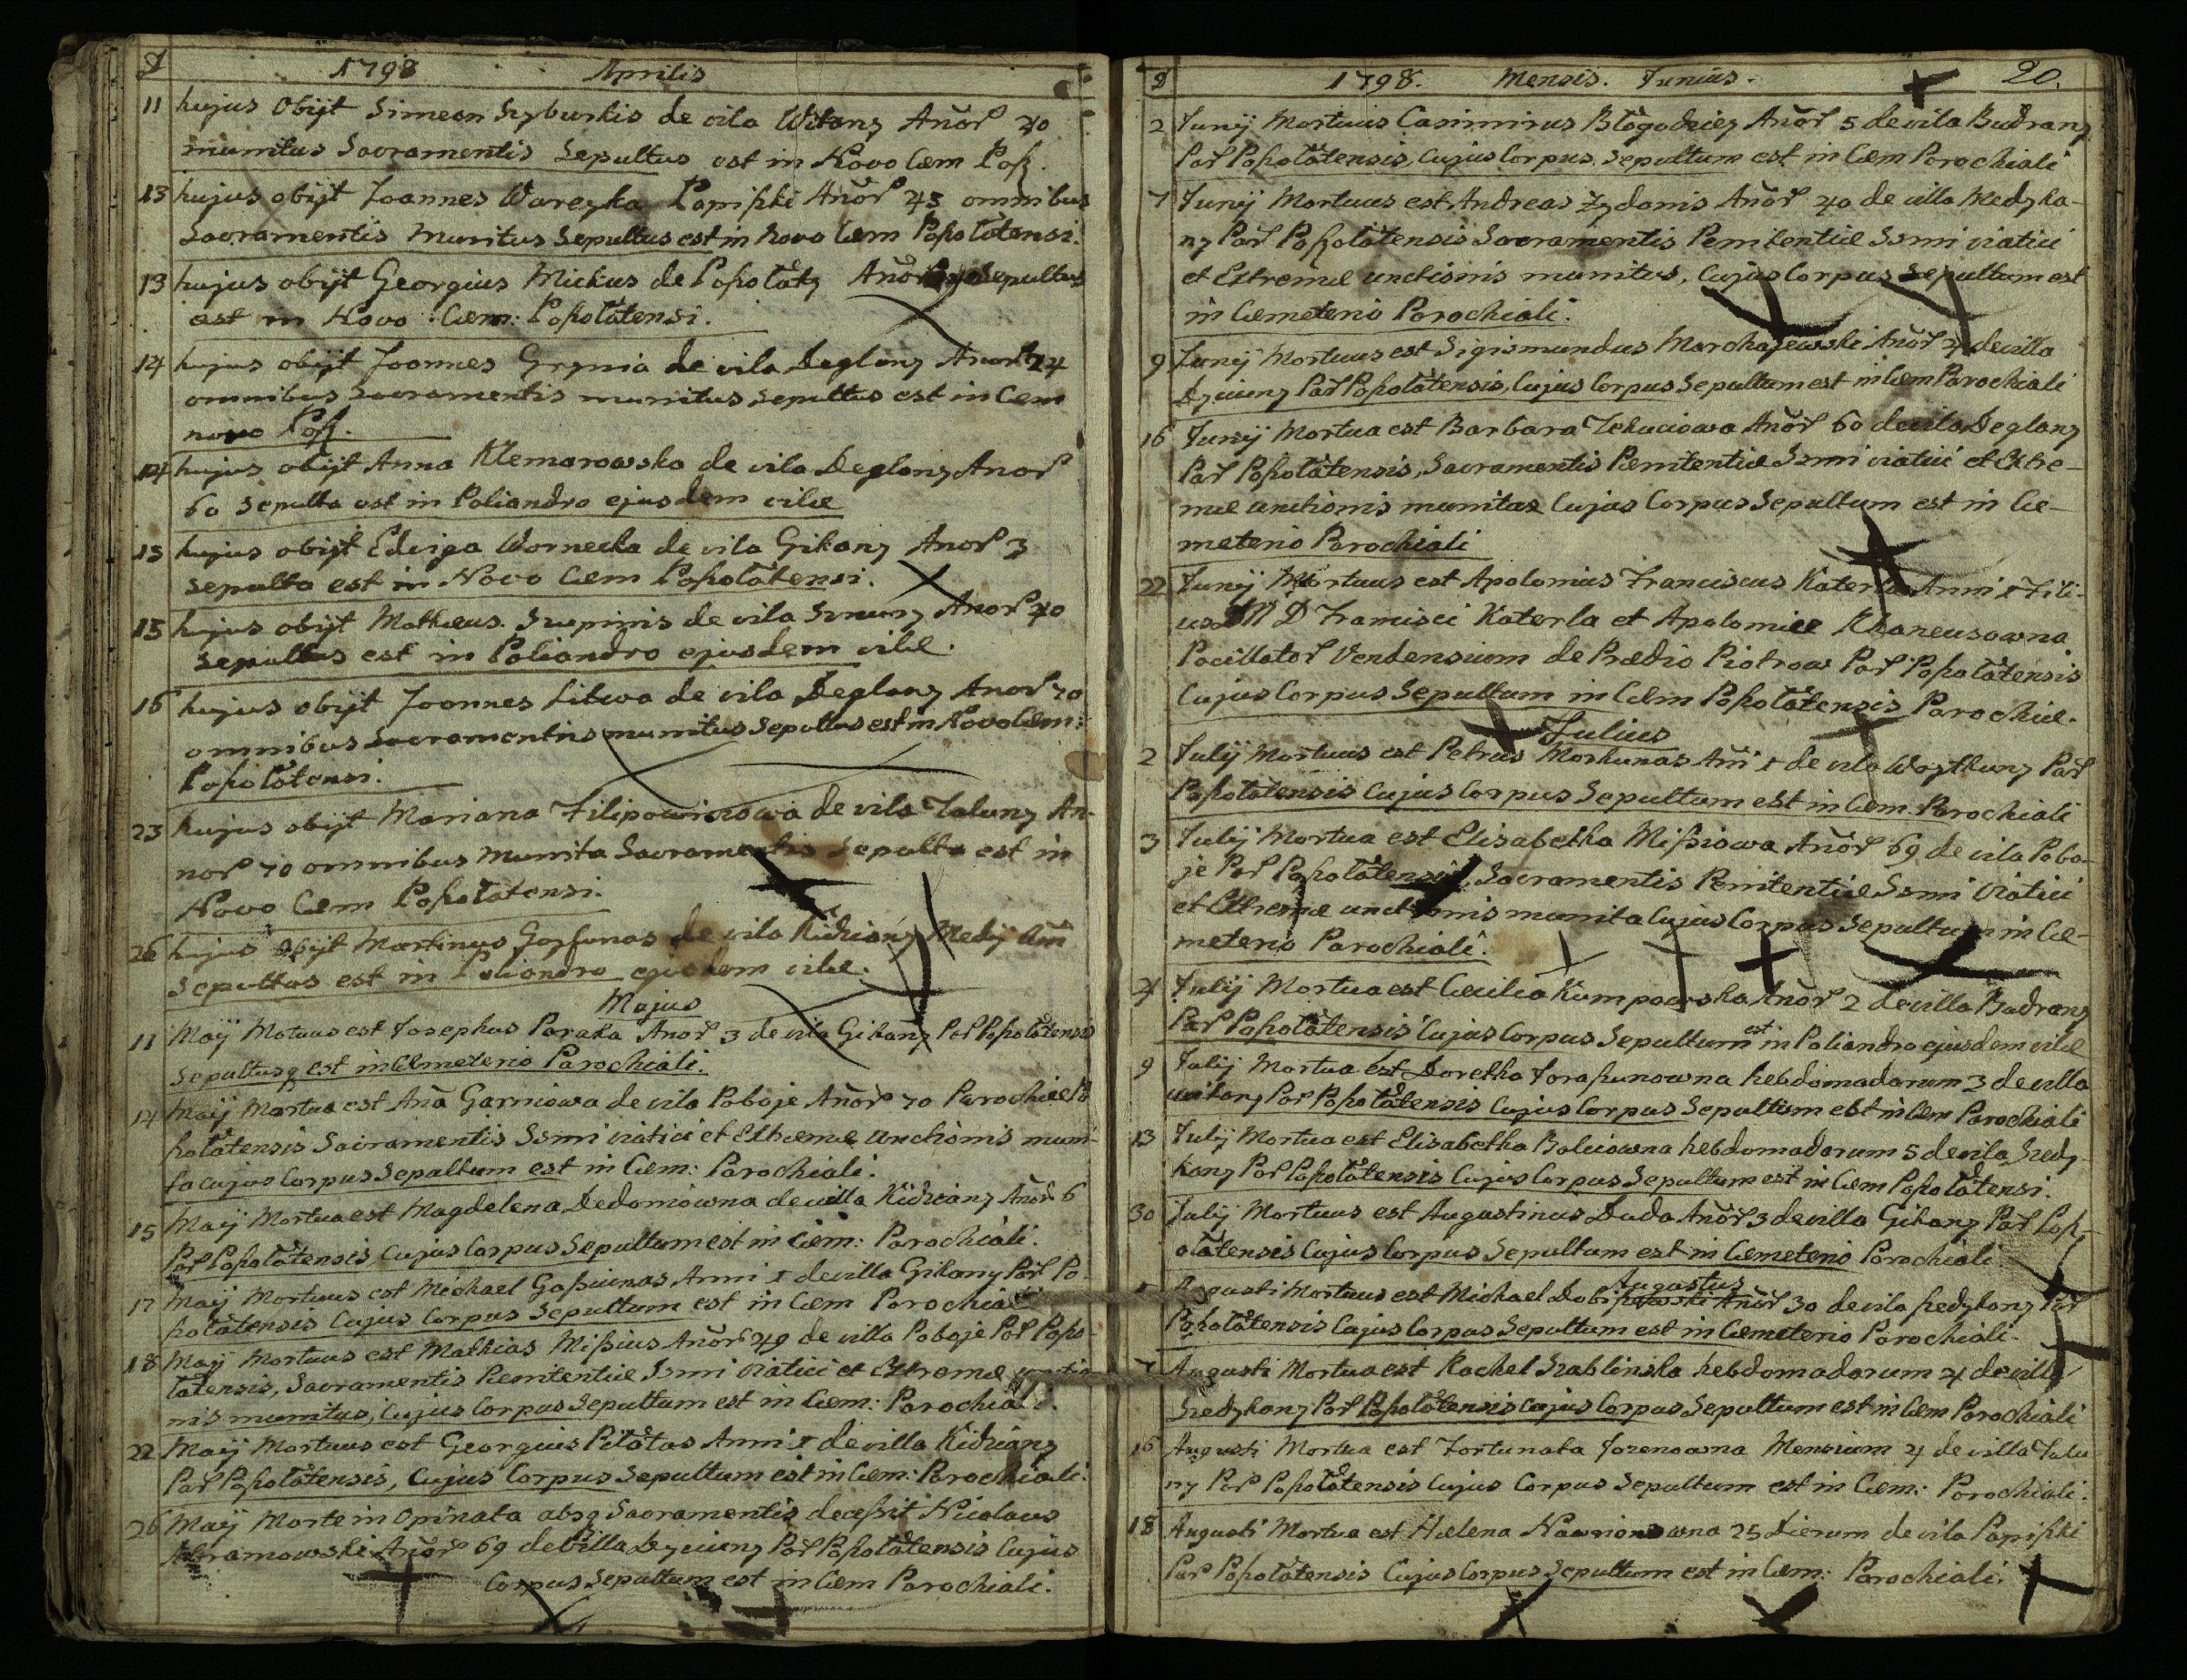 D 1798 Aprilis
11 hujus Obijt Simeon Szyburkis de vila Witany Anõr 40
munitus Sacramentis Sepultus est in Novo Cæm Poß.
13 hujus obijt Joannes Wareyka Papißki Anõr 43 omnibus
Sacramentis munitus Sepultus est in Novo Cæm Poßolatensi.
13 hujus obijt Georgius Mickus de Poßolaty Anõr Sepultus
est in Novo Cæm: Poßolatensi.
14 hujus obijt Joannes Grynia de vila Deglany Anor 14
omnibus Sacramentis munitus Sepultus est in Cæm
novo Poß.
14 hujus obijt Anna Klemarowska de vila Deglany Anor
60 Sepulta est in Poliandro ejusdem vilæ
15 hujus obijt Edviga Wornecka de vila Gikany Anor 3
Sepulta est in Novo Cæm Poßolatensi.
15 hujus obijt Mathæus de vila Anor 40
Sepultus est in Poliandro ejusdem vilæ.
16 hujus obijt Joannes Litwa de vila Deglany Anor 70
omnibus Sacramentris munitus Sepultus est in Novo Cæm:
Poßolatensi.
23 hujus obijt Mariana Filipowiczowa de vila Taluny An-
nor 70 omnibus munita Sacramentis Sepulta est in
Novo Cæm Poßolatensi.
26 hujus obijt Martinus de vila Kidziany Medij Añi
Sepultus est in Poliandro ejusdem vilæ.
Majus
11 Maij Motuus est Josephus Paraka Anor 3 de vila Gikany Par Poßolatensis
Sepultusq est in Cæmeterio Parochiali.
14 Maij Mortua est Aña Garniowa de vila Poboje Anõr 70 Parochiæ Po
ßolatensis Sacramentis Ssmi viatici et Extremæ unctionis muni-
ta cujus Corpus Sepultum est in Cæm: Parochiali.
15 Maij Mortua est Magdalena Dedoniowna de villa Kidziany Anõr 6
Par Poßolatensis, Cujus Corpus Sepultum est in Cæm: Parochiali.
17 Maij Mortuus est Michael Gaßiunas Anni 1 de villa Gikany Par Po-
ßolatensis Cujus Corpus Sepultum est in Cæm Parochiali
18 Maij Mortuus est Mathias Mißius Anõr 49 de villa Poboje Par Poßo-
latensis, Sacramentis Penitentiæ Ssmi viatici et Extremæ unctio-
nis munitus, Cujus Corpus Sepultum est in Cæm: Parochiali.
22 Maij Mortuus est Georgius Pilatas Anni 1 de villa Kidziany
Par Poßolatensis, Cujus Corpus Sepultum est in Cæm: Parochiali.
26 Maij Morte in Opinata absq Sacramentis deceßit Nicolaus
Abramowski Anõr 69 de Villa Dzeiuny Par Poßolatensis Cujus
Corpus Sepultum est in Cæm Parochiali.
D 1798. Mensis. Junius. 20.
2 Junij Mortuus Casimirus Blogodziej Anõr 5 de vila Budrany
Par Poßolatensis, Cujus Corpus, Sepultum est in Cæm Parochiali
7 Junij Mortuus est Andreas Zydanis Anõr 40 de villa Medyka-
ny Par Poßolatensis Sacramentis Penitentiæ Ssmi viatici
et Extremæ unctionis munitus, Cujus Corpus Sepultum est
in Cæmeterio Parochiali.
9 Junij Mortuus est Sigismundus Marchajewski Anõr 4 de villa
Dzeiuny Par Poßolatensis, Cujus Corpus Sepultum est in Cæm Parochiali
16 Junij Mortua est Barbara Anõr 60 de vila Deglany
Par Poßolatensis, Sacramentis Pænitentiæ Ssmi viatici et Extre-
mæ unctionis munitæ Cujus Corpus Sepultum est in Cæ-
meterio Parochiali
22 Junij Mortuus est Apolonius Franciscus Katerla Anni 1 Fili-
us M D Francisci Katerla et Apoloniæ Khaneusowna
Pocillator Vendensium de Prædio Piotrow Par Poßolatensis
Cujus Corpus Sepultum in Cæm Poßolatensis Parochiæ.
Julius
2 Julij Mortuus est Petrus Morkunas Añi 1 de vila Woytkuny Par
Poßolatensis Cujus Corpus Sepultum est in Cæm. Parochiali
3 Julij Mortua est Elisabetha Mißiowa Anõr 69 de vila Pobo-
je Par Poßolatensis, Sacramentis Penitentiæ Ssmi Viatici
et Extremæ unctionis munita Cujus Corpus Sepultum in Cæ-
meterio Parochiali.
4 Julij Mortua est Cæcilia Kumpowska Anõr 2 de villa Budrany
Par Poßolatensis Cujus Corpus Sepultum est in Poliandro ejusdem vilæ
9 Julij Mortua est Dorotha Joraßunowna hebdomadarum 3 de villa
witany Par Poßolatensis Cujus Corpus Sepultum est in Cæm Parochiali
13 Julij Mortua est Elisabetha Balciowna hebdomadarum 5 de vila Szedy-
kany Par Poßolatensis Cujus Corpus Sepultum est in Cæm Poßolatensi.
30 Julij Mortuus est Augustinus Duda Anõr 3 de villa Gikany Par Poß-
olatensis Cujus Corpus Sepultum est in Cæmeterio Parochiali
Augustus
Augusti Mortuus est Michael Dobißewski Anõr 30 de vila ßedykany Par
Poßolatensis Cujus Corpus Sepultum est in Cæmeterio Parochiali.
7 Augusti Mortua est Rachel Szablinska hebdomadarum 4 de villa
Szedykany Par Poßolatensis Cujus Corpus Sepultum est in Cæm Parochiali
16 Augusti Mortua est Fortunata Jozenowna Mensium 4 de villa Talu
ny Par Poßolatensis Cujus Corpus Sepultum est in Cæm: Parochiali.
18 Augusti Mortua est Hælena 25 Dierum de vila Papißki
Par Poßolatensis Cujus Corpus Sepultum est in Cæm: Parochiali.